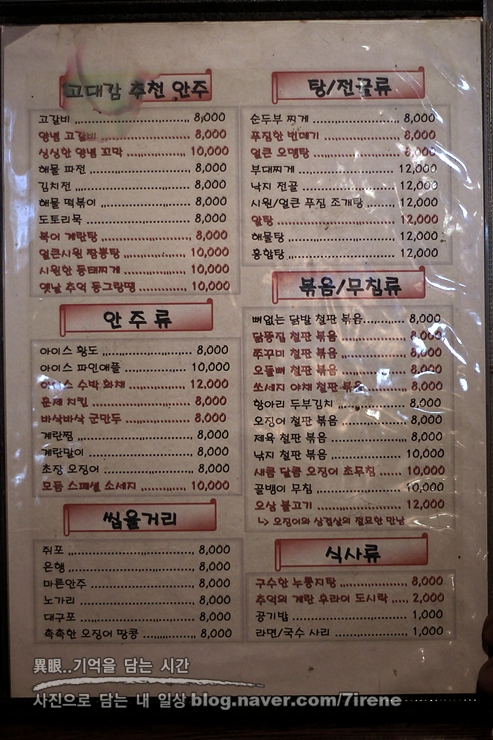 고대감 추천 안주
고갈비 8,000
양념 고갈비 8,000
싱싱한 양념 꼬막 10,000
해물 파전 8,000
김치전 8,000
해물 떡볶이 8,000
도토리묵 8,000
북어 계란탕 8,000
얼큰시원 짬뽕탕 10,000
시원한 동태찌게 10,000
옛날 추억 동그랑땡 10,000
안주류
아이스 황도 8,000
아이스 파인애플 10,000
아이스 수박 화채 12,000
훈제 치킨 8,000
바삭바삭 군만두 8,000
계란찜 8,000
계란말이 8,000
초장 오징어 8,000
모듬 스페셜 소세지 10,000
씹을거리
쥐포 8,000
은행 8,000
마른안주 8,000
노가리 8,000
대구포 8,000
촉촉한 오징어 땅콩 8,000
탕/전골류
순두부 찌게 8,000
푸짐한 번데기 8,000
얼큰 오뎅탕 8,000
부대찌게 12,000
낙지 전골 12,000
시원/얼큰 푸짐 조개탕 12,000
알탕 12,000
해물탕 12,000
홍합탕 8,000
볶음/무침류
뼈없는 닭발 철판 볶음 8,000
닭똥집 철판 볶음 8,000
쭈꾸미 철판 볶음 8,000
오돌뼈 철판 볶음 8,000
쏘세지 야채 철판 볶음 8,000
항아리 두부김치 8,000
오징어 철판 볶음 8,000
제육 철판 볶음 8,000
낙지 철판 볶음 10,000
새콤 달콤 오징어 초무침 10,000
골뱅이 무침 10,000
오삼 불고기 12,000
↳ 오징어와 삼겹살의 절묘한 만남
식사류
구수한 누룽지탕 8,000
추억의 계란 후라이 도시락 2,000
공기밥 1,000
라면/국수 사리 1,000
異眼..기억을 담는 시간
사진으로 담는 내 일상 blog.naver.com/7irene